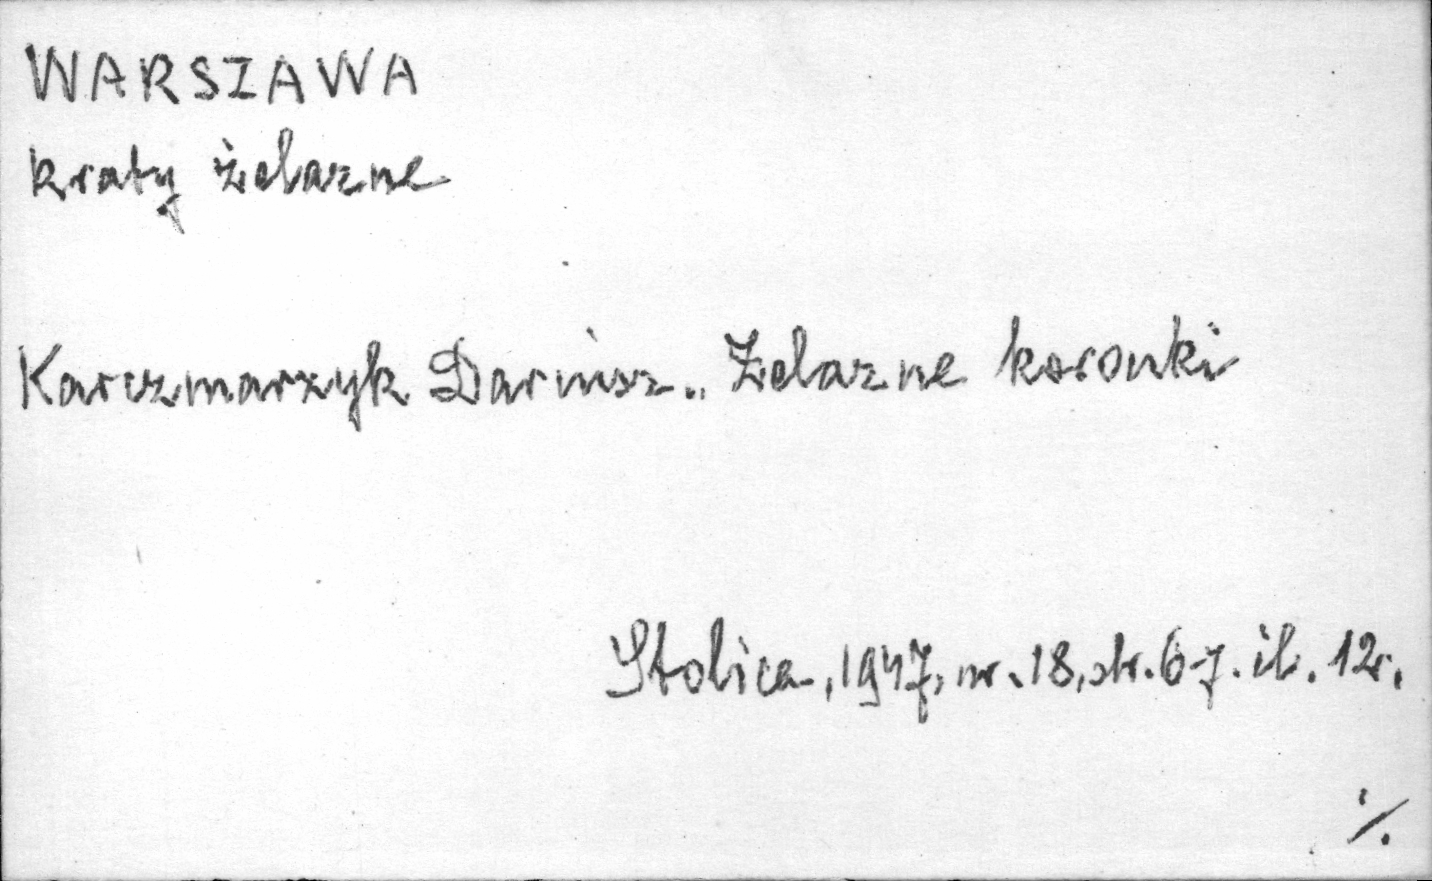 WARSZAWA
kraty żelazne
Karczmarzyk Dariusz. Żelazne koronki
Stolica, 1947, nr. 18, str. 6-7. il. 12.
./.